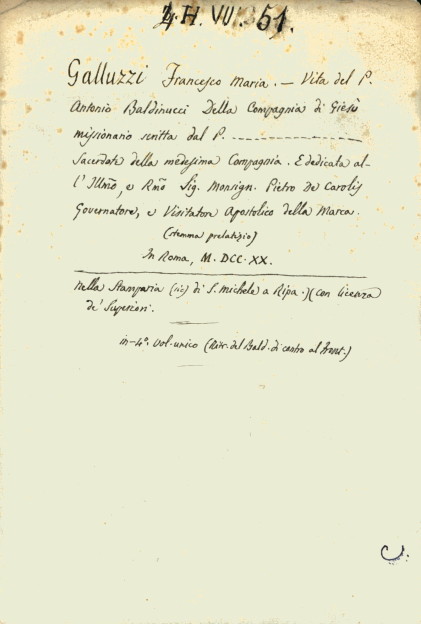 4. H. VII. 51.
Galluzzi Francesco Maria. — Vita del P.
Antonio Baldinucci Della Compagnia di Giesù
missionario scritta dal P. ------------
Sacerdote della medesima Compagnia. E dedicata al-
l' Illmo, e Rmo Sig. Monsign. Pietro De Carolis
Governatore, e Visitatore Apostolico della Marca.
(stemma prelatizio)
In Roma, M. DCC. XX.
Nella Stamparia (sic) di S. Michele a Ripa.)( con licenza
de' Superiori.
in-4°. vol. unico (Ritr. del Bald. di contro al front.)